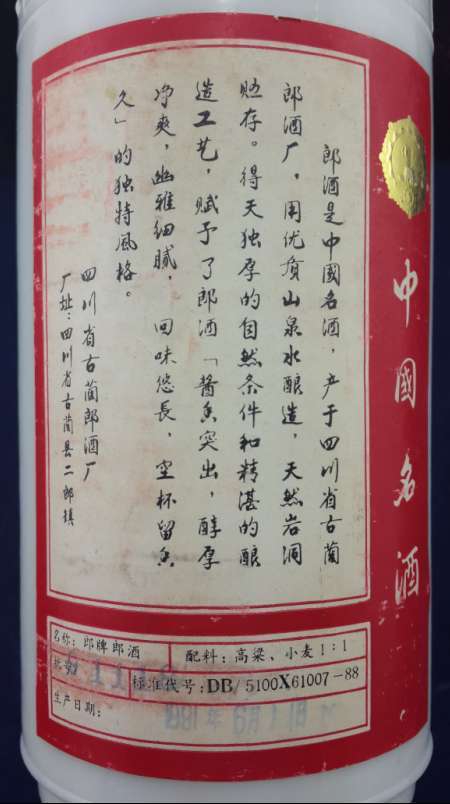 郎酒是中國名酒，产于四川省古蔺
郎酒厂，用优质山泉水酿造，天然岩洞
贮存。得天独厚的自然条件和精湛的酿
造工艺，赋予了郎酒「酱香突出，醇厚
净爽，幽雅细腻，回味悠長，空杯留香
久」的独特風格。
四川省古蔺郎酒厂
厂址：四川省古蔺县二郎镇
中國名酒
名称：郎牌郎酒
配料：高粱、小麦1:1
标准代号：DB/5100X61007-88
生产日期：
1991年6月